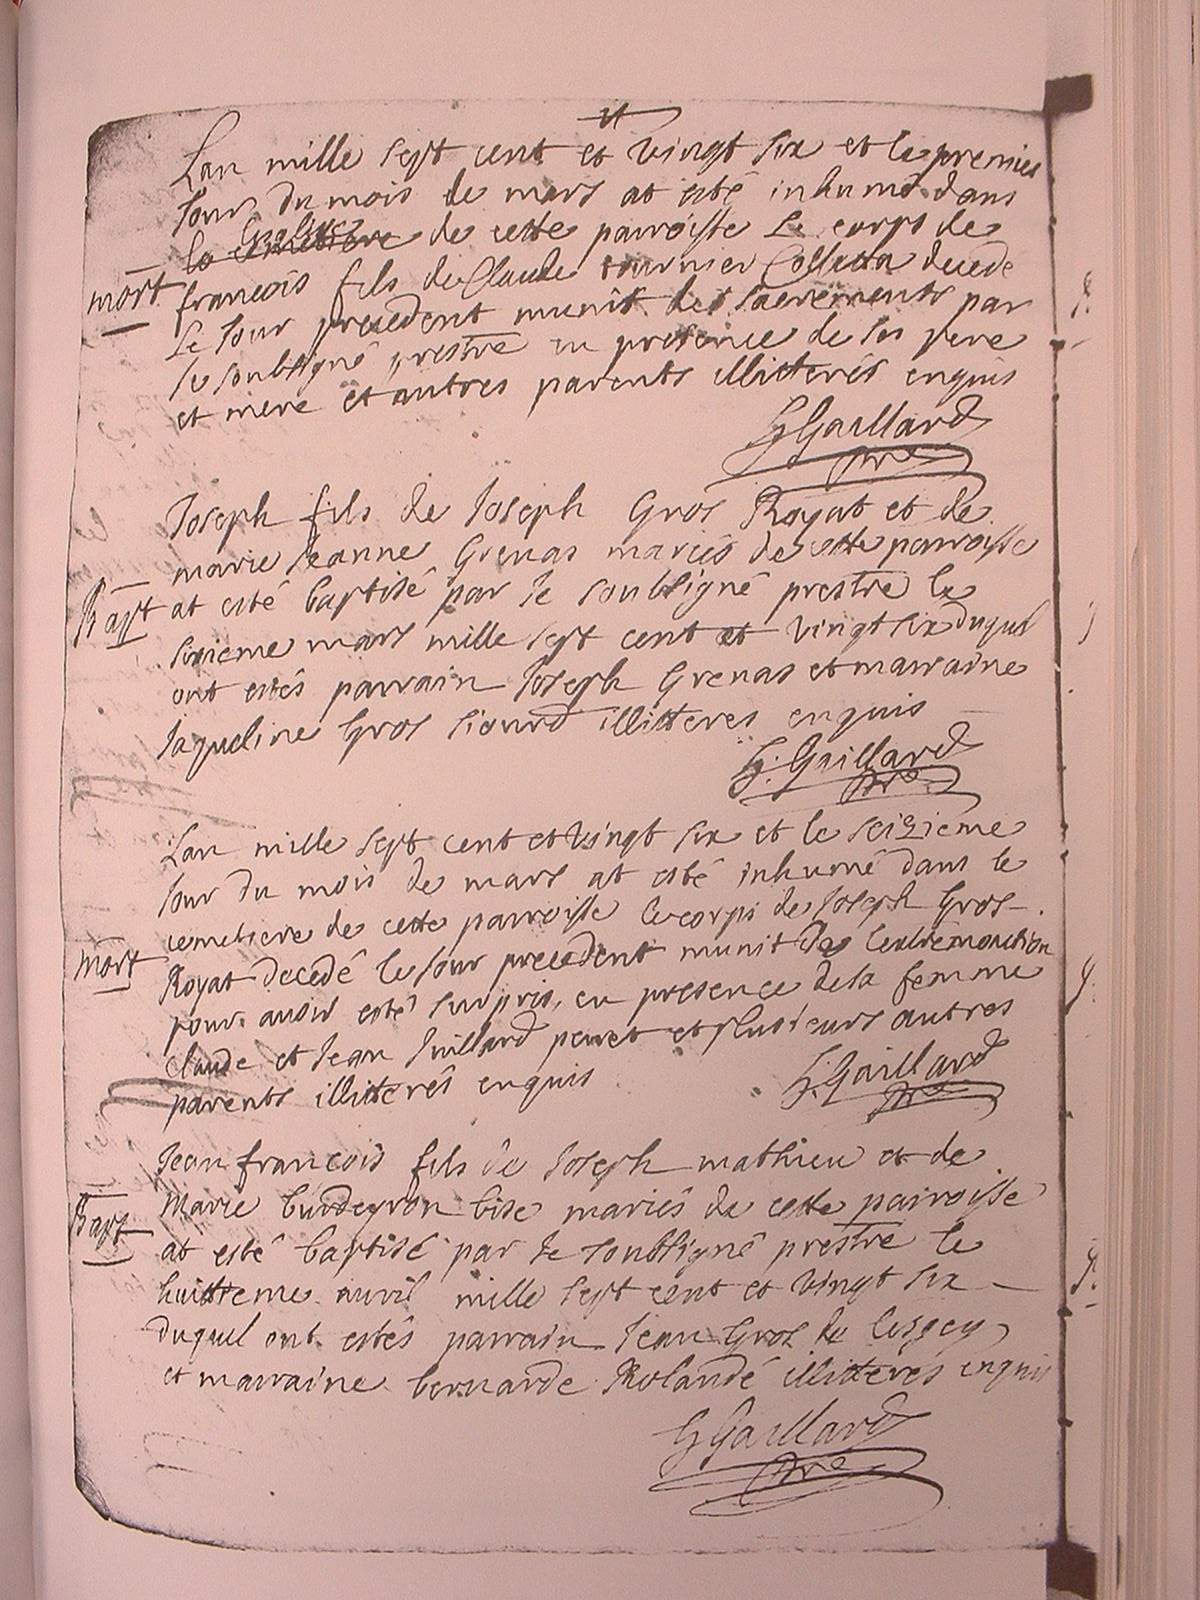 Lan mille sept cent et vingt six et le premier
Jour du mois de mars at esté inhumé dans
Leglise de cette parroisse Le corps de
mort
francois fils de Claude tournier Colletta decede
Le Jour precedent munit des sacrements par
Je soubsigné prestre en presence de ses pere
et mere et autres parents illitterés enquis
G Gaillard
pre
Joseph fils de Joseph Gros Royat et de
marie Jeanne Grenas mariés de cette parroisse
Bapt
at esté baptisé par Je soubsigné prestre le
sixieme mars mille sept cent et vingt six duquel
ont estés parrain Joseph Grenas et marraine
Jaqueline Gros siourd illitteres enquis
G. Gaillard
pre
Lan mille sept cent et vingt six et le seizieme
Jour du mois de mars at esté inhumé dans le
cemetiere de cette parroisse le corps de Joseph Gros
mort
Royat decedé le Jour precedent munit de lextremonction
pour avoir esté surpris, en presence de sa femme
claude et Jean Juillard perret et plusieurs autres
parents illitterés enquis
G. Gaillard
pre
Jean francois fils de Joseph mathieu et de
Marie burdeyron bise mariés de cette parroisse
Bapt
at esté baptisé par Je soubsigné prestre le
huittieme avvril mille sept cent et vingt six
duquel ont estés parrain Jean Gros de
et marraine bernarde Rolande illitterés enquis
G Gaillard
pre